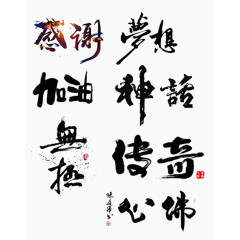 感謝
夢想
加油
神話
無極
傳奇
心佛